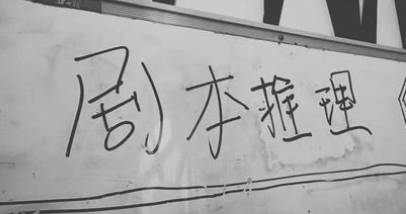 剧本推理